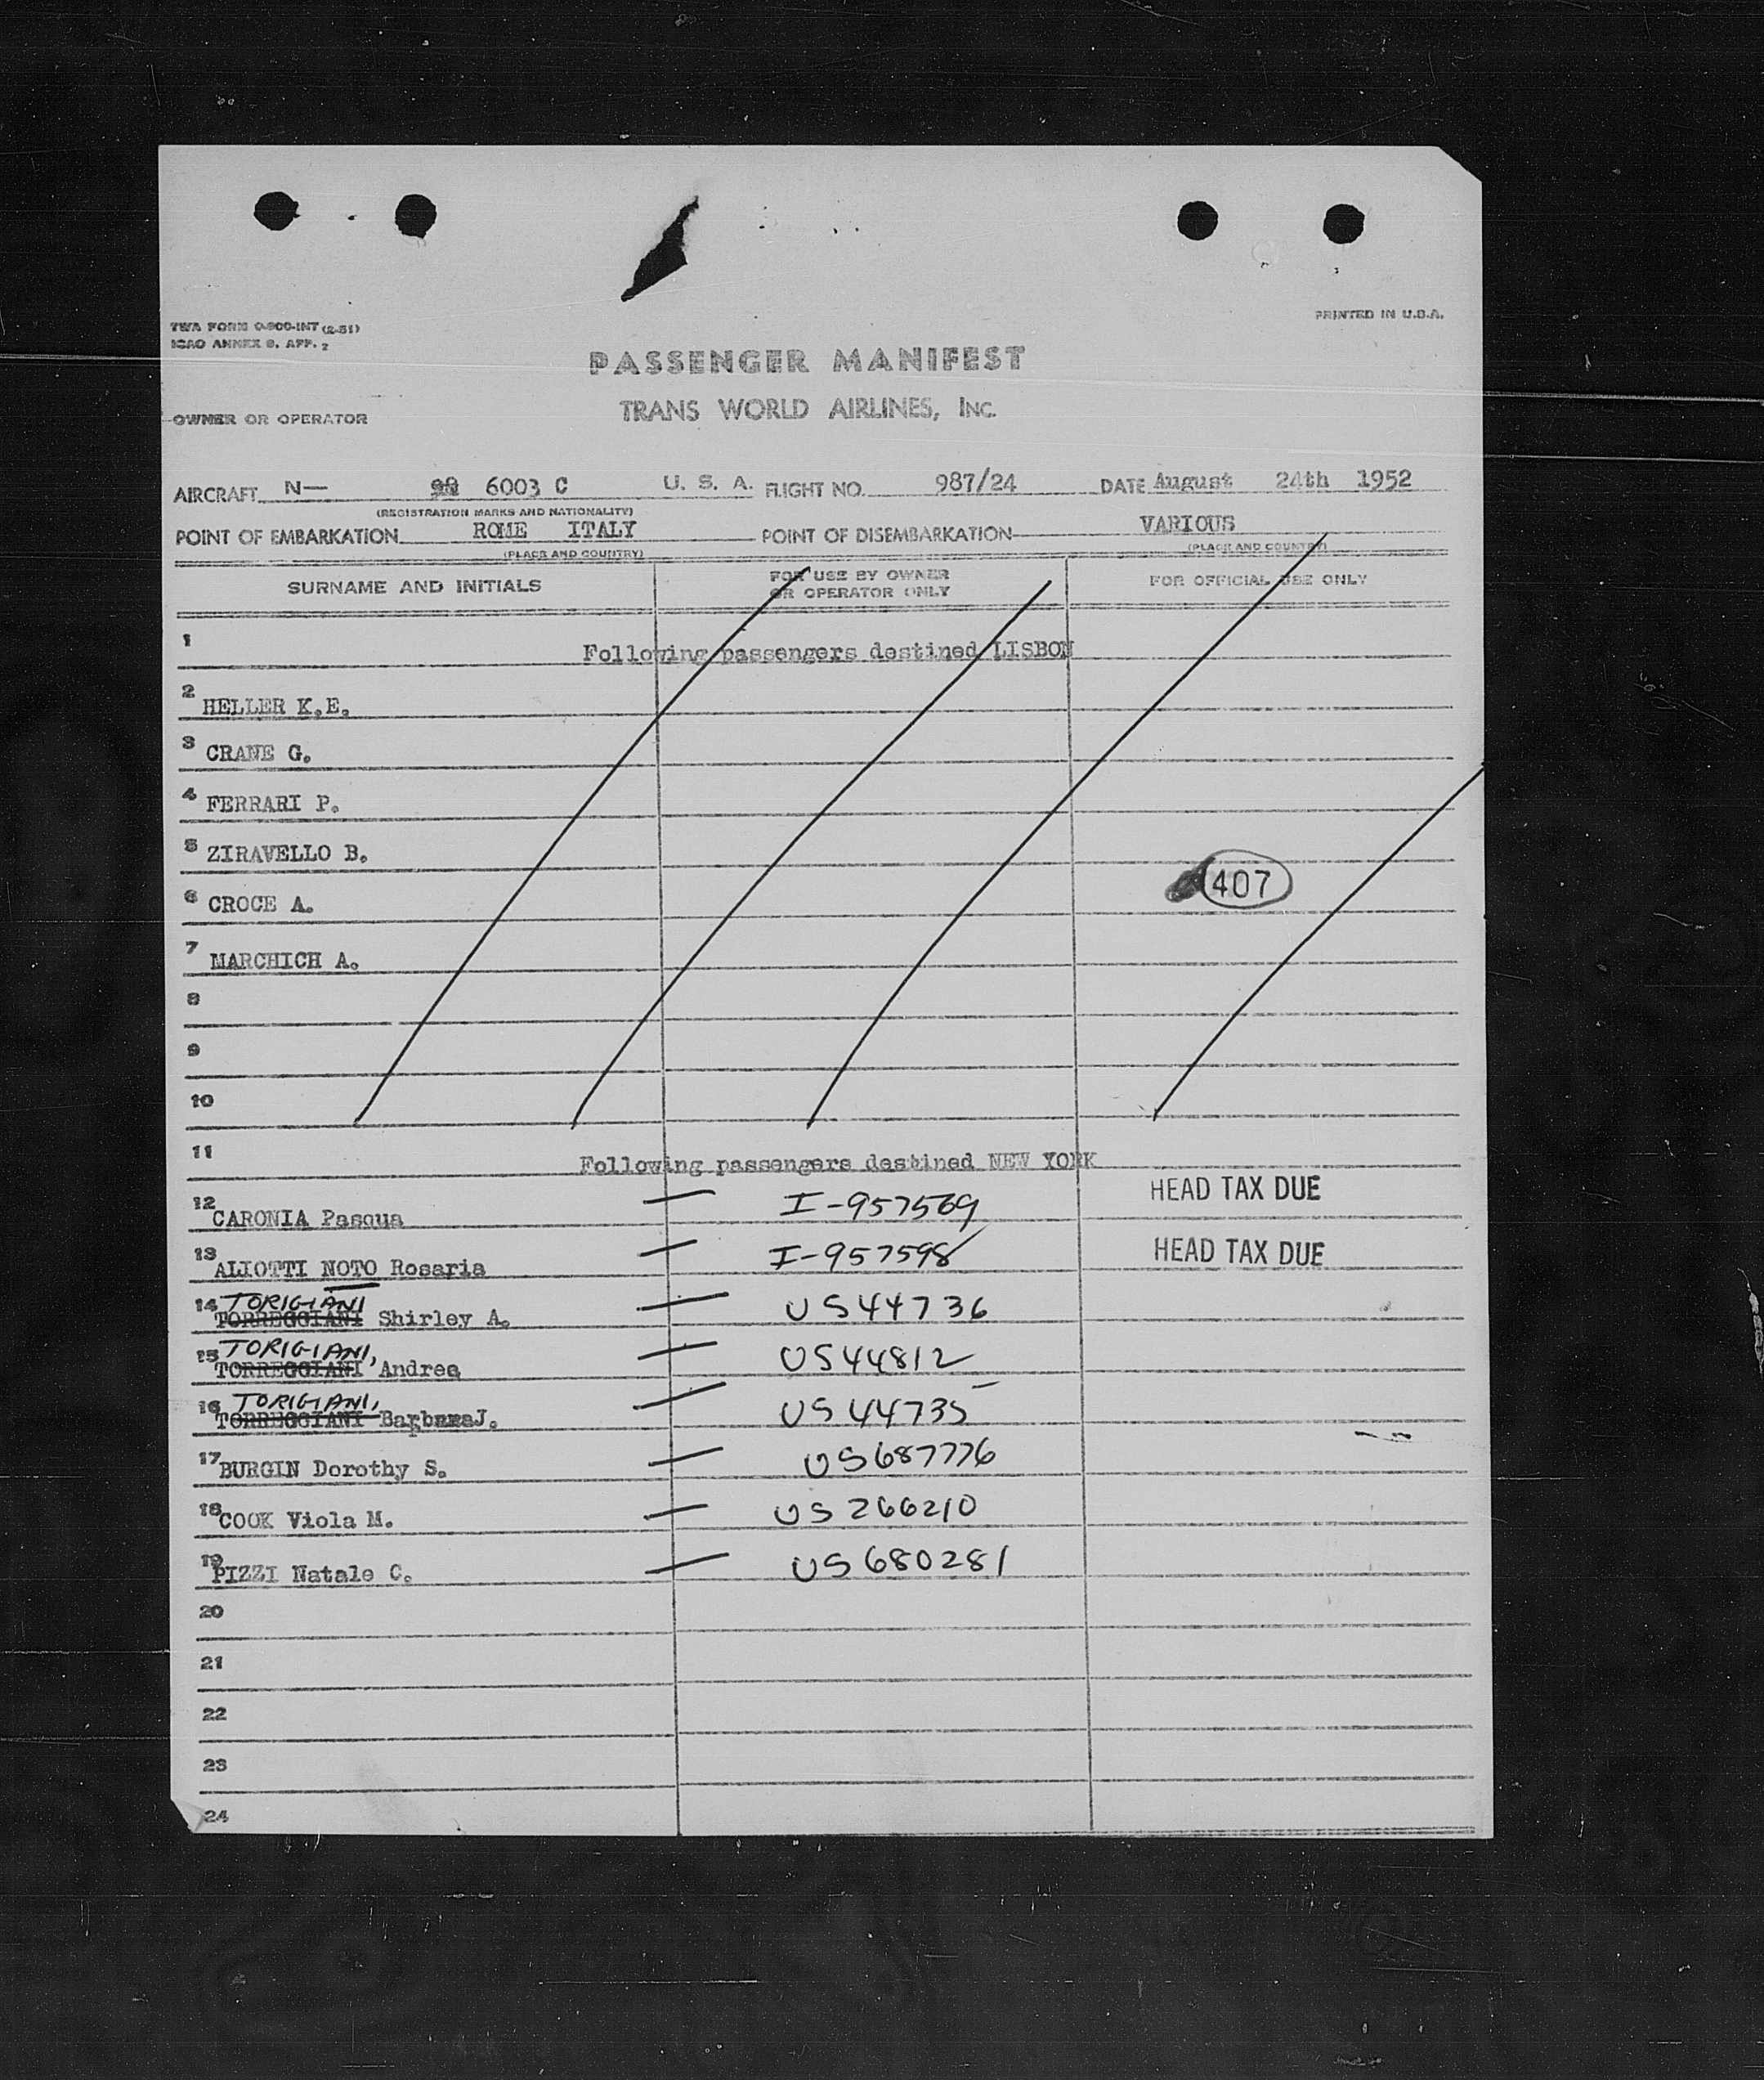 TWA FORM O-900-INT (2-51)
ICAO ANNEX 9. APP. 2
PRINTED IN U.S.A.
PASSENGER MANIFEST
TRANS WORLD AIRLINES, INC.
OWNER OR OPERATOR
AIRCRAFT N— 6003 C U. S. A. FLIGHT NO. 987/24 DATE August 24th 1952
(REGISTRATION MARKS AND NATIONALITY)
POINT OF EMBARKATION ROME ITALY POINT OF DISEMBARKATION VARIOUS
(PLACE AND COUNTRY) (PLACE AND COUNTRY)
SURNAME AND INITIALS FOR USE BY OWNER OR OPERATOR ONLY FOR OFFICIAL USE ONLY
1 Following passengers destined LISBON
2 HELLER K.E.
3 CRANE G.
4 FERRARI P.
5 ZIRAVELLO B.
407
6 CROCE A.
7 MARCHICH A.
8
9
10
11 Following passengers destined NEW YORK
12 CARONIA Pasqua — I-957569 HEAD TAX DUE
13 ALIOTTI NOTO Rosaria — I-957598 HEAD TAX DUE
TORIGIANI
14 TORREGGIANI Shirley A. — US44736
TORIGIANI,
15 TORREGGIANI Andrea — US44812
TORIGIANI,
16 TORREGGIANI Barbara J. — US44735
17 BURGIN Dorothy S. — US687776
18 COOK Viola M. — US266210
19 PIZZI Natale C. — US680281
20
21
22
23
24